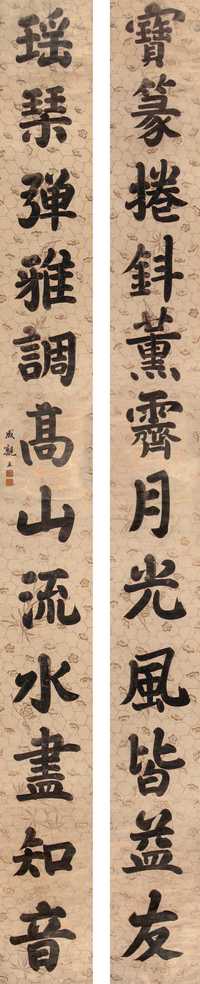 寶篆捲斜薰霽月光風皆益友
瑶琴彈雅調髙山流水盡知音
成親王